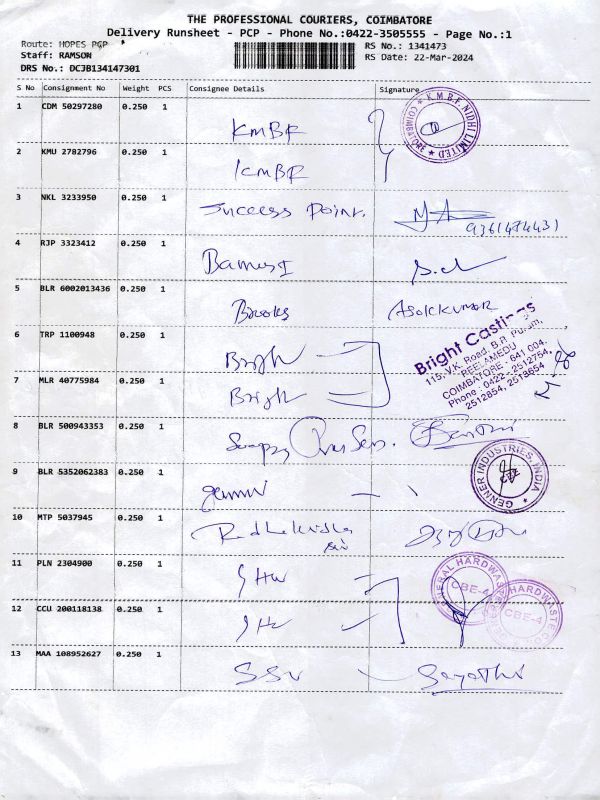 THE PROFESSIONAL COURIERS, COIMBATORE
Delivery Runsheet - PCP - Phone No.:0422-3505555 - Page No.:1
Route: HOPES PCP
RS No.: 1341473
Staff: RAMSON
RS Date: 22-Mar-2024
DRS No.: DCJB134147301
S No Consignment No Weight PCS Consignee Details Signature
1 CDM 50297280 0.250 1 KMBF
K.M.B.F. NIDHI LIMITED ★ COIMBATORE ★
2 KMU 2782796 0.250 1 KMBF
3 NKL 3233950 0.250 1 Success Point.
9361484431
4 RJP 3323412 0.250 1
5 BLR 6002013436 0.250 1 Brooks Asokkumar
6 TRP 1100948 0.250 1 Bright
Bright Castings
115, V.K. Road, B.R. Puram,
PEELAMEDU
COIMBATORE - 641 004.
Phone : 0422 - 2512754,
2512854, 2513654
7 MLR 40775984 0.250 1 Bright
8 BLR 500943353 0.250 1
9 BLR 5352062383 0.250 1
GENNER INDUSTRIES, INDIA
CBE
10 MTP 5037945 0.250 1
11 PLN 2304900 0.250 1 GHW
GENERAL HARDWARE
CBE-4
12 CCU 200118138 0.250 1
HARDWARE
CBE-4
13 MAA 108952627 0.250 1 SSV Gayathri